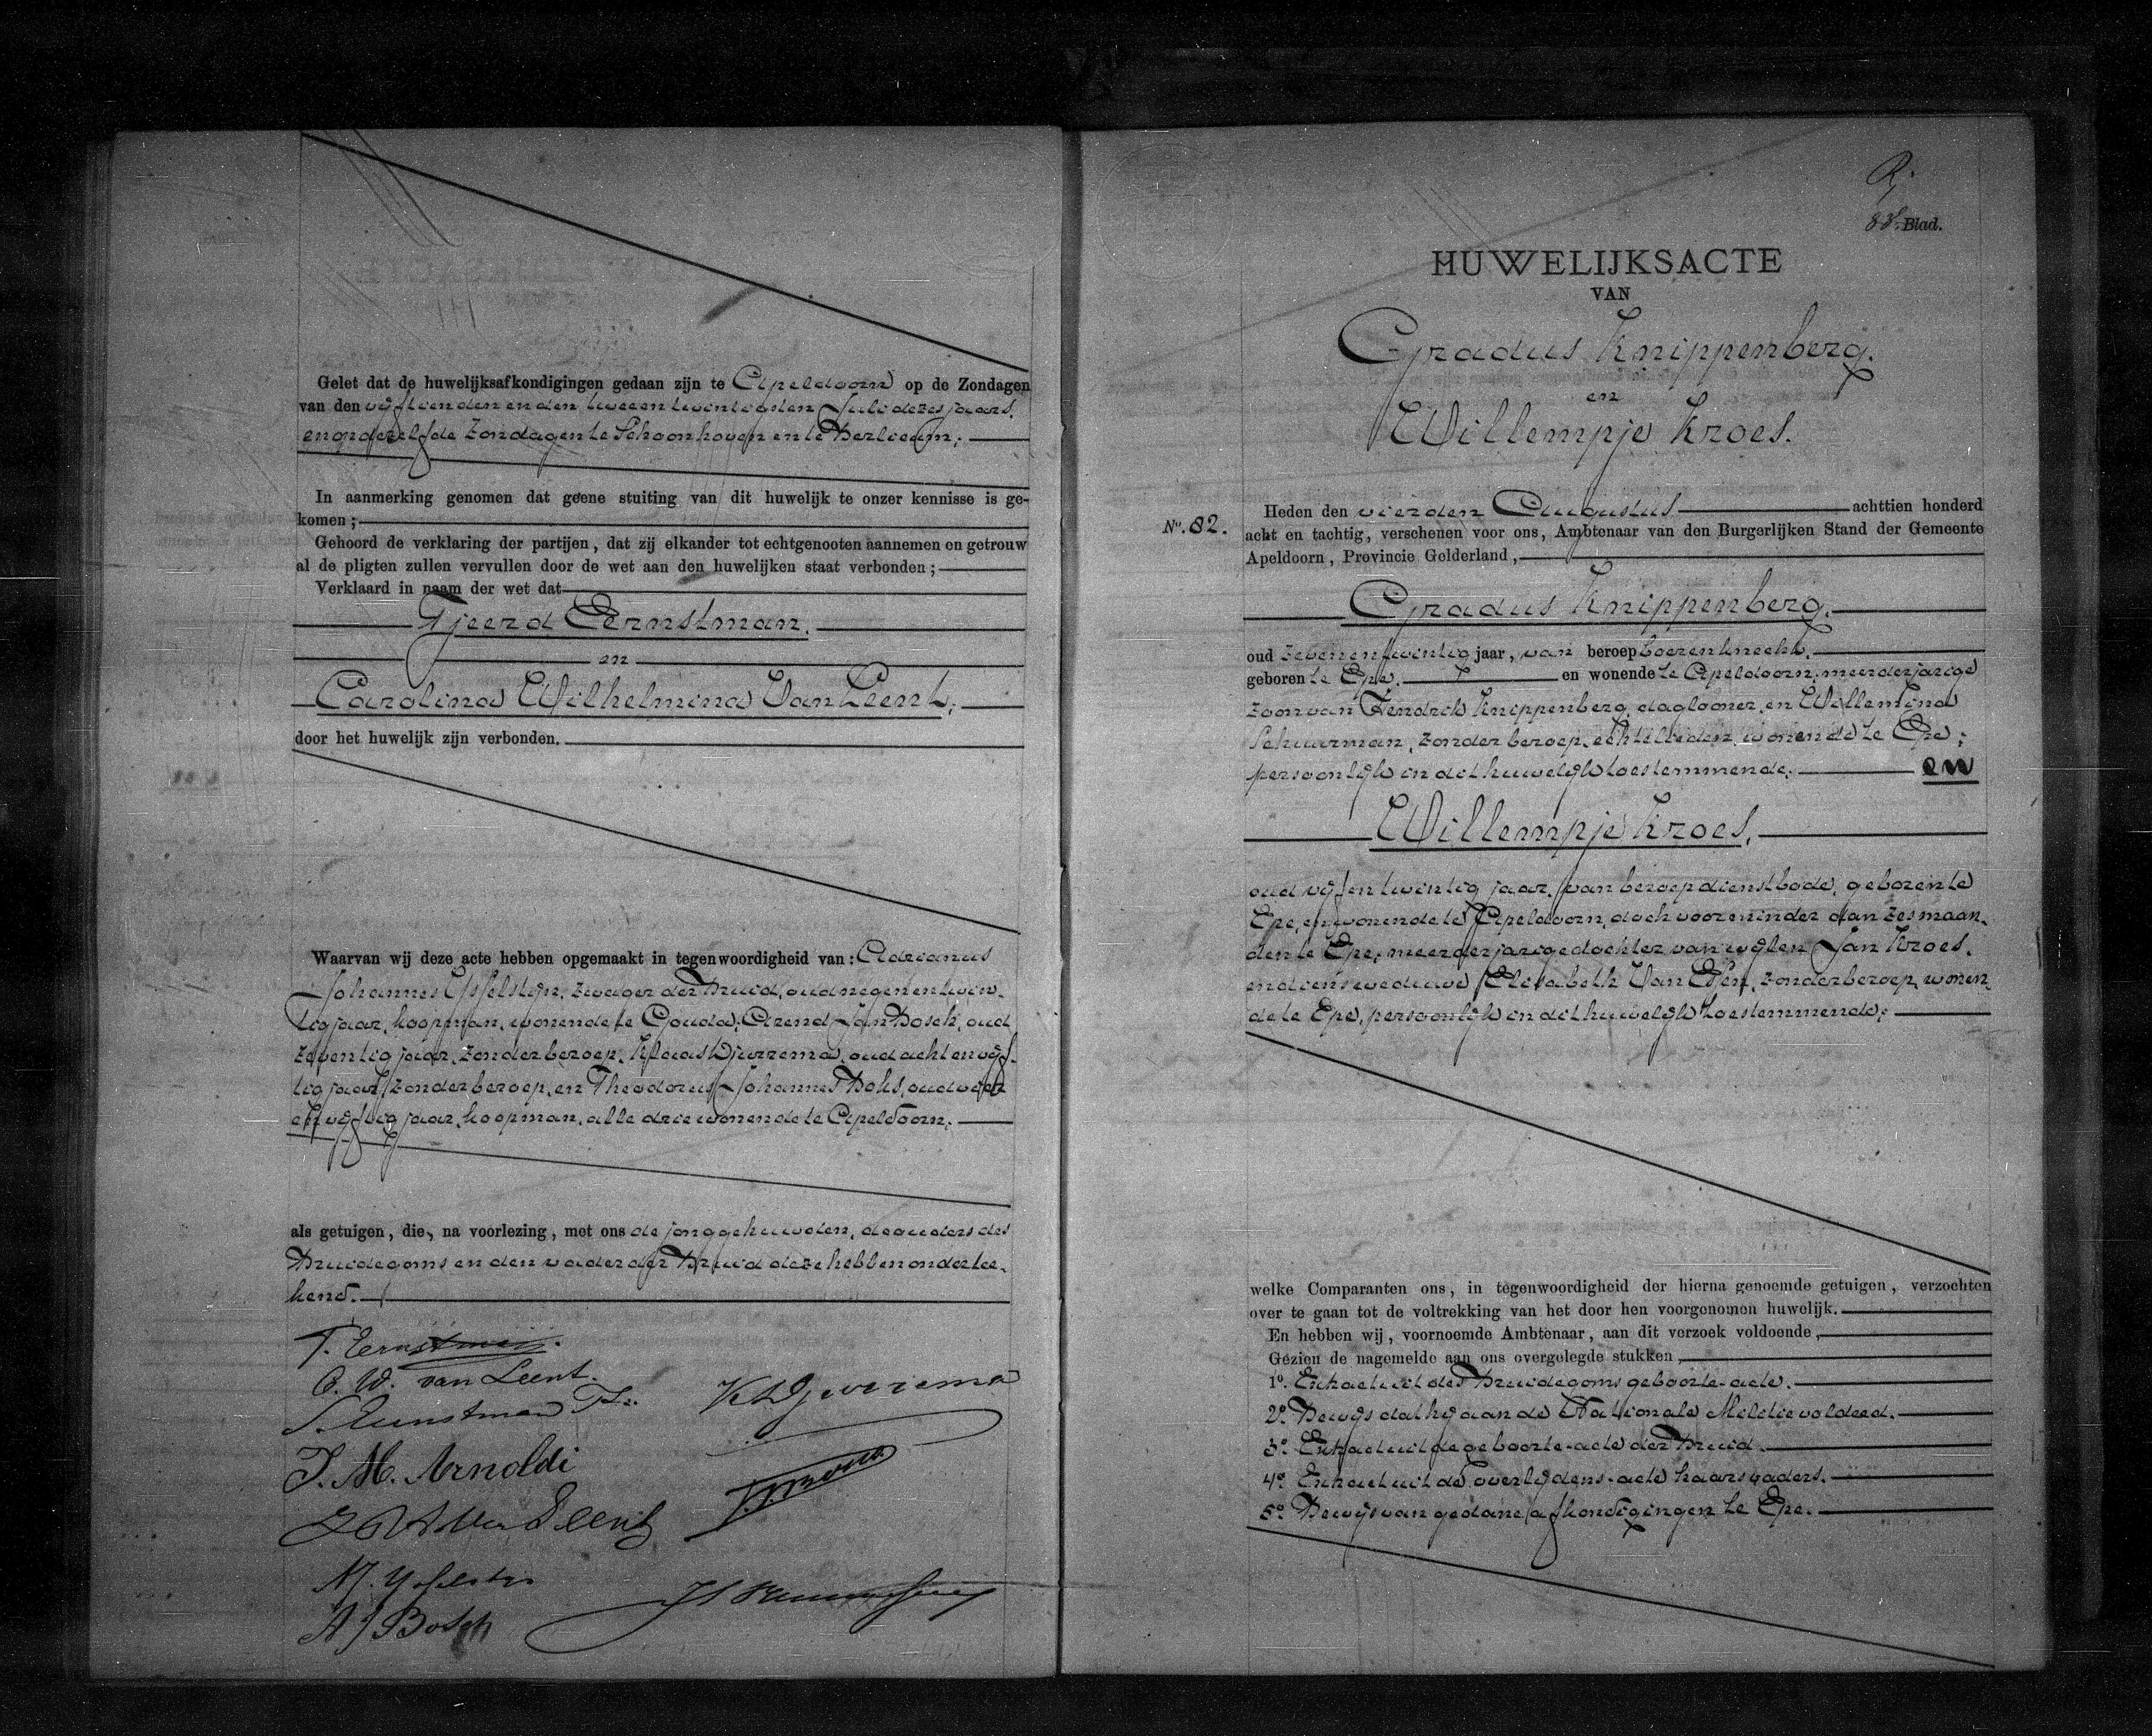 Gelet dat de huwelijksafkondigingen gedaan zijn te Apeldoorn op de Zondagen
van den vijftienden en den tweeentwintigsten Juli dezes jaars.
en op dezelfde Zondagen te Schoonhoven en te Berlicum;
In aanmerking genomen dat geene stuiting van dit huwelijk te onzer kennisse is ge-
komen;
Gehoord de verklaring der partijen, dat zij elkander tot echtgenooten aannemen en getrouw
al de pligten zullen vervullen door de wet aan den huwelijken staat verbonden;
Verklaard in naam der wet dat
Tjeerd Eernstman.
en
Carolina Wilhelmina Van Leent,
door het huwelijk zijn verbonden.
Waarvan wij deze acte hebben opgemaakt in tegenwoordigheid van: Adrianus
Johannes IJsselstijn, zwager der Bruid, oud negenentwin-
tig jaar, koopman, wonende te Gouda; Arend Jan Bosch, oud
zeventig jaar, zonder beroep, Klaas Djurrema, oud achtenvijf-
tig jaar, zonder beroep, en Theodorus Johannes Boks, oud vier
en vijftig jaar, koopman, alle drie wonende te Apeldoorn,
als getuigen, die, na voorlezing, met ons de jonggehuwden, de ouders des
Bruidegoms en den vader der Bruid deze hebben ondertee-
kend.
T. Eernstman.
C. W. van Leent.
S. Eernstman Tz.
K Djurrema
J. M. Arnoldi
van Leent
A J Bosch
83e Blad.
HUWELIJKSACTE
VAN
Gradus Knippenberg.
en
Willempje Kroes.
No. 82.
Heden den vierden Augustus achttien honderd
acht en tachtig, verschenen voor ons, Ambtenaar van den Burgerlijken Stand der Gemeente
Apeldoorn, Provincie Gelderland,
Gradus Knippenberg.
oud zevenentwintig jaar, van beroep boerenknecht,
geboren te Epe. en wonende te Apeldoorn; meerderjarige
zoon van Hendrik Knippenberg, daglooner, en Willemina
Schuurman, zonder beroep, echtelieden, wonende te Epe;
persoonlijk in dit huwelijk toestemmende; en
Willempje Kroes,
oud vijfentwintig jaar, van beroep dienstbode, geboren te
Epe, en wonende te Apeldoorn, doch voor minder dan zes maan-
den te Epe; meerderjarige dochter van wijlen Jan Kroes,
en diens weduwe Elisabeth Van Essen, zonder beroep, wonen-
de te Epe, persoonlijk in dit huwelijk toestemmende;
welke Comparanten ons, in tegenwoordigheid der hierna genoemde getuigen, verzochten
over te gaan tot de voltrekking van het door hen voorgenomen huwelijk.
En hebben wij, voornoemde Ambtenaar, aan dit verzoek voldoende,
Gezien de nagemelde aan ons overgelegde stukken
1o. Extract uit des Bruidegoms geboorte-acte.
2o. Bewijs dat hij aan de Nationale Militie voldeed.
3o. Extract uit de geboorte-acte der Bruid.
4o. Extract uit de overlijdens-acte haars vaders.
5o. Bewijs van gedane afkondigingen te Epe.